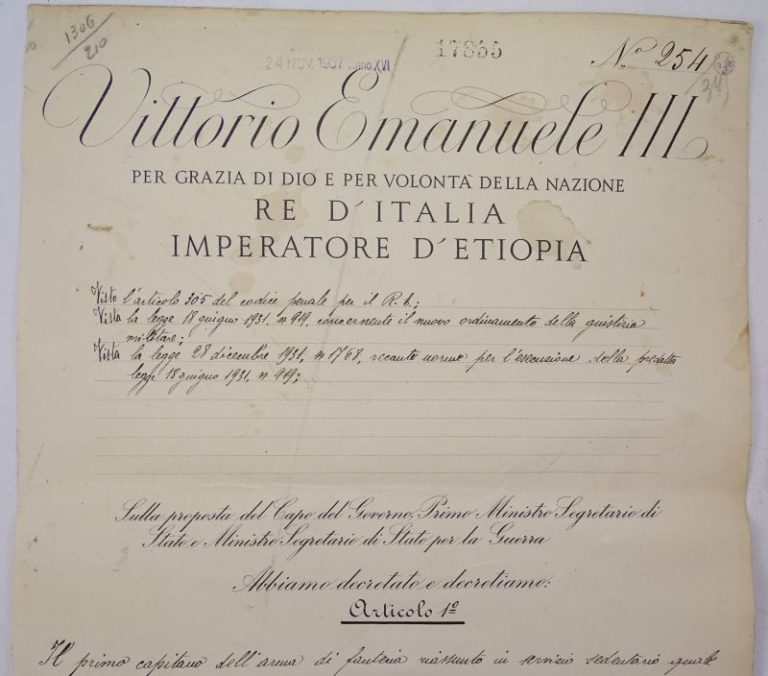 1306
210
24 NOV. 1937 Anno XVI
17855
N.º 254
Vittorio Emanuele III
PER GRAZIA DI DIO E PER VOLONTÀ DELLA NAZIONE
RE D'ITALIA
IMPERATORE D'ETIOPIA
Visto l'articolo 305 del codice penale per il R. E.;
Vista la legge 18 giugno 1931, n 919, concernente il nuovo ordinamento della giustizia
militare;
Vista la legge 28 dicembre 1931, n 1768, recante norme per l'esecuzione della predetta
legge 18 giugno 1931, n 919;
Sulla proposta del Capo del Governo, Primo Ministro Segretario di
Stato e Ministro Segretario di Stato per la Guerra
Abbiamo decretato e decretiamo:
Articolo 1º
Il primo capitano dell'arma di fanteria riassunto in servizio sedentario quale